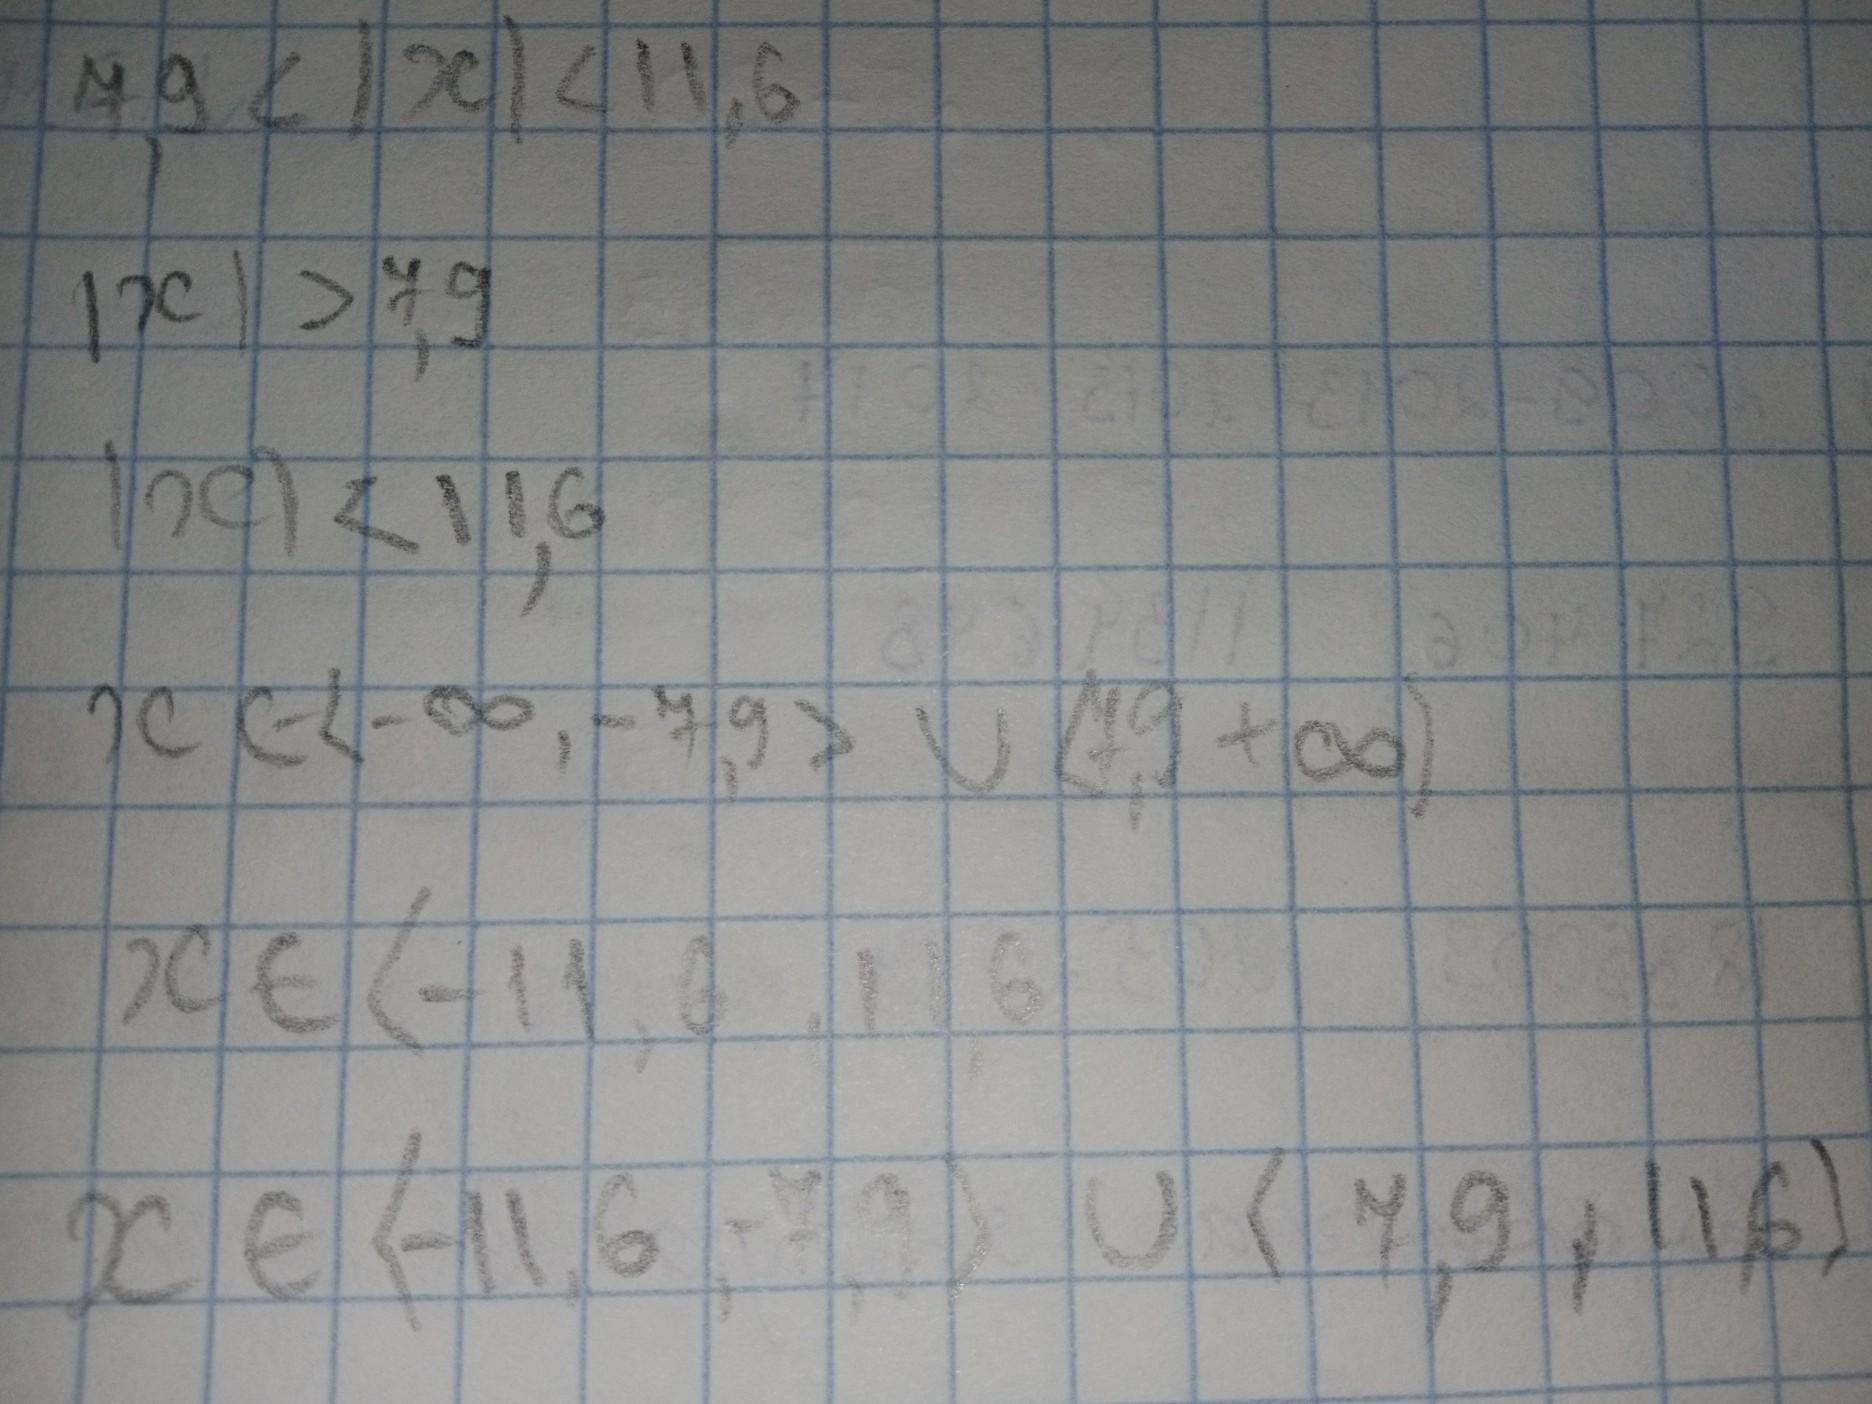 7,9 < |x| < 11,6
|x| > 7,9
|x| < 11,6
x ∈ <-∞, -7,9> ∪ <7,9 +∞)
x ∈ ⟨-11,6, 11,6
x ∈ ⟨-11,6, -7,9) ∪ ⟨7,9, 11,6)